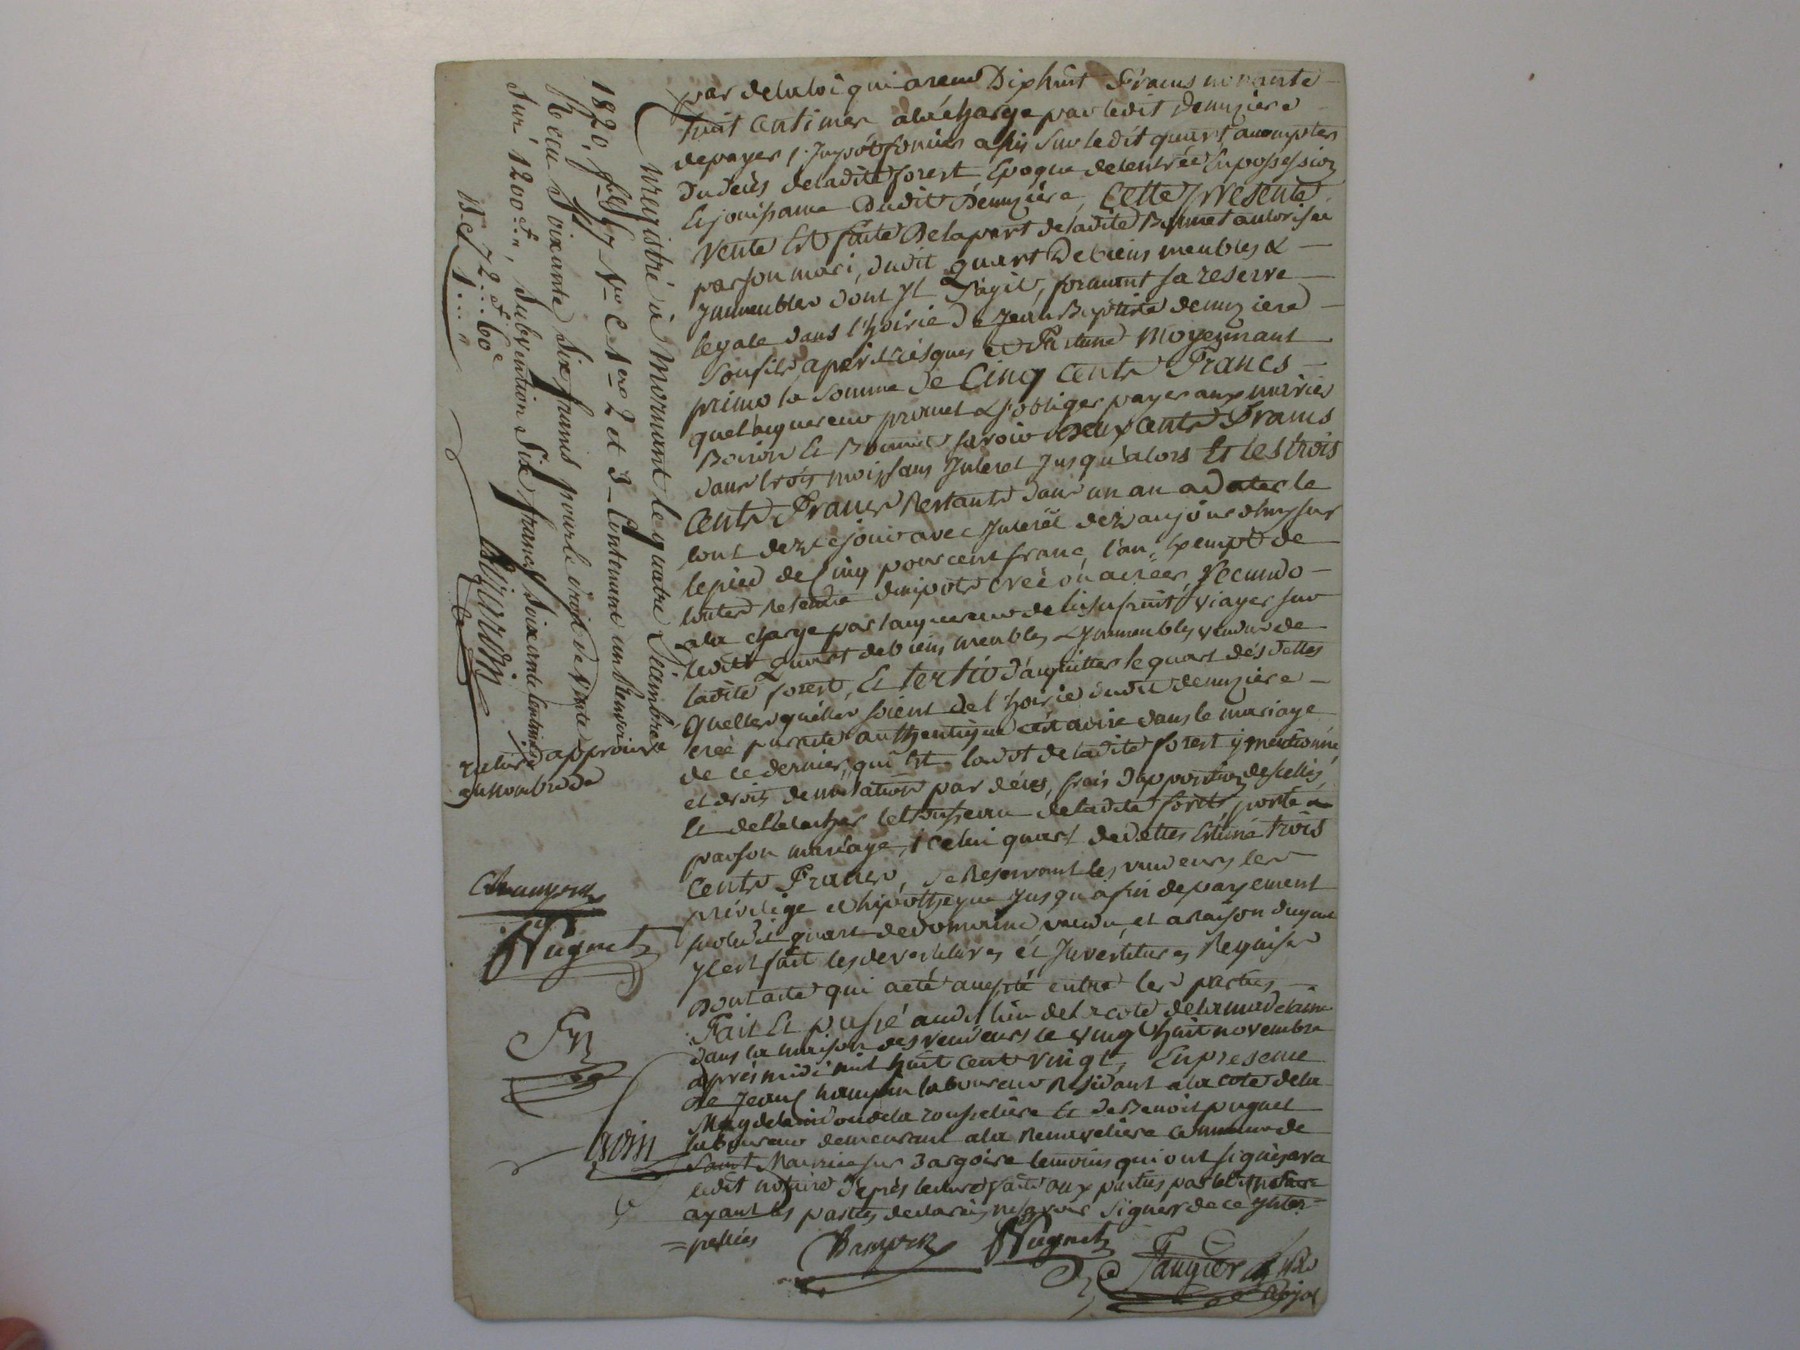 par de la loi qui a reçu Dixhuit francs nonante
huit centimes a la charge par ledit Demuziere
de payer l'impôt foncier assis sur ledit quart, a compter
du deces de ladite forest Epoque de lentrée en possession
Et jouissance Dudit Demuziere, Cette presente
Vente Est faite De la part de ladite Bonnet autorisée
par son mari, dudit quart De biens meubles &
Immeubles dont Il s'agit, formant sa reserve
legale dans l'hoirie de Jean Baptiste demuziere
son fils, a peril risques et fortune Moyennant
primo la somme de Cinq cents Francs
que l'acquereur promet & s'obliger payer aux mariés
Boiron Et Bonnet savoir Deux cents Francs
dans trois mois sans Interet Jusqu'alors Et les trois
Cents Francs Restants dans un an a dater le
tout dez ce jour avec Interêt dez aujourdhuy sur
le pied de Cinq pour cent franc, l'an, Exempts de
toutes Retenue d'impots créé ou a créer, Secundo
a la charge par l'acquereur de l'usufruit viager sur
ledit quart de biens meubles & Immeubles vendu de
ladite forest, Et tertio d'acquitter le quart des dettes
Quelles quelles soient de l'hoirie dudit demuziere
creé par acte authentique c'est a dire dans le mariage
de ce dernier, qui Est la dot de ladite forest y mentionné
et droits de mutation par décés, frais d'apposition de scellés,
Et de Relacher le trousseau de ladite forest porté
par son mariage, icelui quart de dettes Estimé trois
Cents Francs, se Reservant les vendeurs leur
privilége et hipotheque Jusqu'a fin de payement
sur ledit quart de domaine, vendu, et a raison duquel
Il est fait les devestitures et Investitures Requises
Dont acte qui a été accepté entre les parties
Fait Et passé audit lieu de la cote de la magdelaine
dans la maison des vendeurs le vingt huit novembre
après midi mil huit cent vingt, En presence
de Jean laboureur Residant a la cote de la
Magdelaine ou de la rousseliere Et de Benoit puguet
laboureur demeurant a la Renaveliere commune de
Saint Maurice sur Dargoire temoins qui ont signés avec
ledit notaire d'après lecture faite aux parties par ledit notaire
ayant les parties declarés ne savoir signer de ce Inter
=pellées
Puguet
Faugier
Enregistré à Mornant le quatre Décembre
1820, fo 57 Vo C 1ere 2 et 3 Contenant un Renvoi
Reçu Soixante Six francs pour le droit de Vente
Sur 1200 f., Subvention Six francs Soixante Centimes
72 f. 60 c
rature approuvé
Puguet